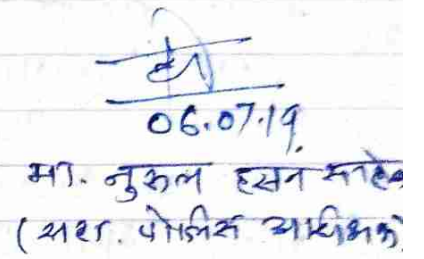 06.07.19
मा. नुरुल हसन साहेब
(सहा. पोलिस अधिक्षक